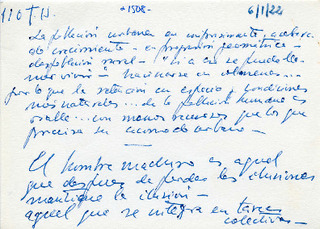 -1508-
6/1/22
La población urbana en
de crecimiento - en progresión geométrica -
despoblación rural - "si a eso se puede lla-
mar vivir" - hacinarse en colmenas...
por lo que la relación en espacio y condiciones
más naturales... de la población humana es
con menos recursos que los que
precisa su
El hombre maduro es aquel
que después de perder las ilusiones
mantiene la ilusión -
aquel que se integra en tareas
colectivas -